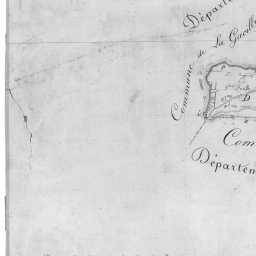 Départe
Commune de La Gacill
D
Com
Départem